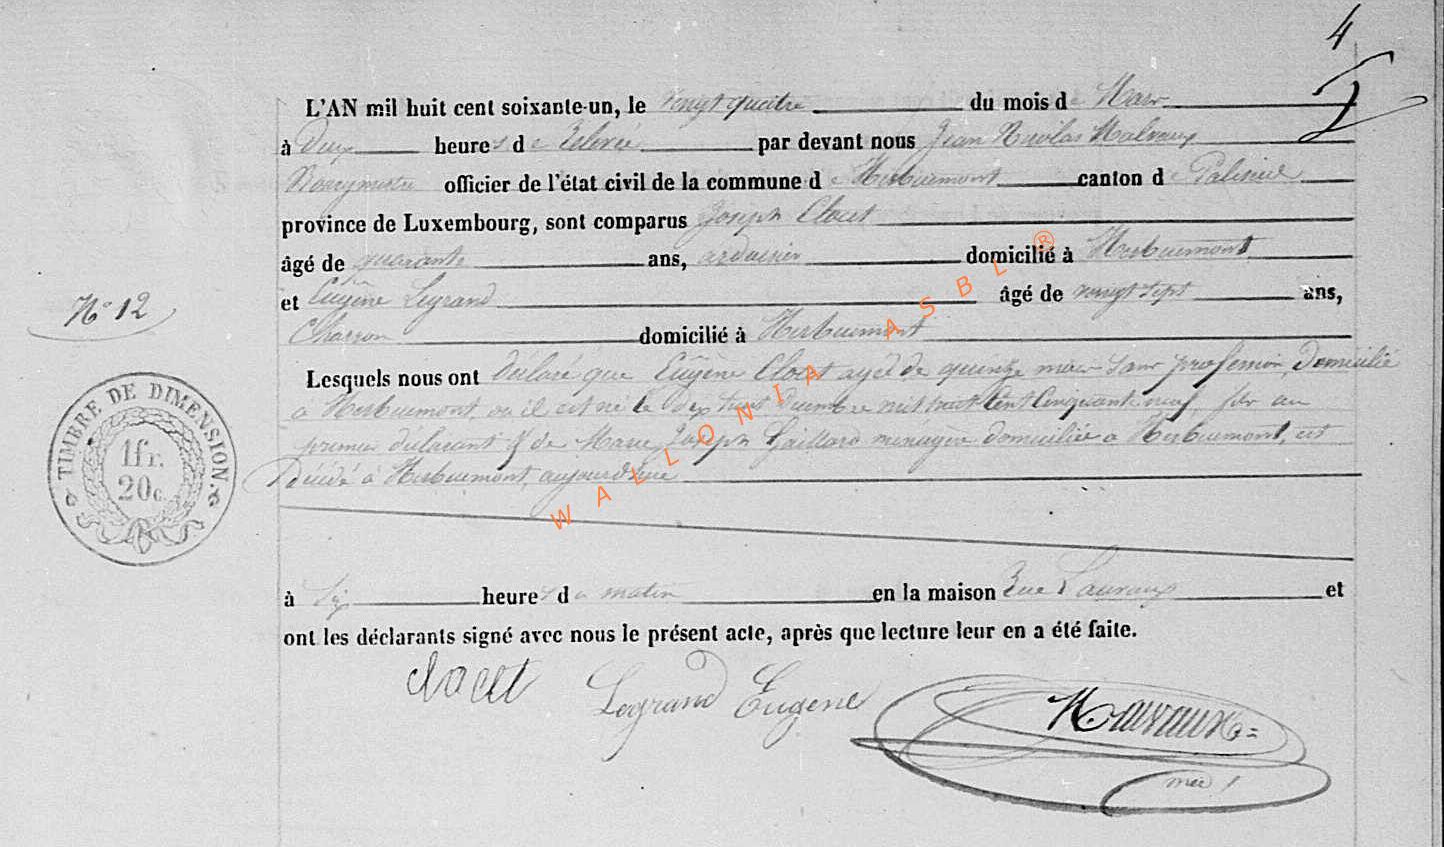 4
L'AN mil huit cent soixante-un, le vingt quatre du mois de Mars
à Deux heures de Relevée par devant nous Jean Nicolas Malvaux
Bourgmestre officier de l'état civil de la commune de Herbeumont canton de Paliseul
province de Luxembourg, sont comparus Joseph Clocet
âgé de quarante ans, ardoisier domicilié à Herbeumont
et Eugène Legrand âgé de vingt sept ans,
N° 12
Charron domicilié à Herbeumont
Lesquels nous ont déclaré que Eugène Clocet agé de quinze mois sans profession, Domicilié
à Herbeumont où il est né le dix huit Décembre mil huit Cent Cinquante neuf, fils au
premier déclarant & de Marie Joseph Gaillard ménagère domiciliée à Herbeumont, est
Décédé à Herbeumont, aujourd'hui
TIMBRE DE DIMENSION.
1fr.
20c.
à Six heures du matin en la maison Rue et
ont les déclarants signé avec nous le présent acte, après que lecture leur en a été faite.
Clocet Legrand Eugene Malvaux
WALLONIA ASBL ®